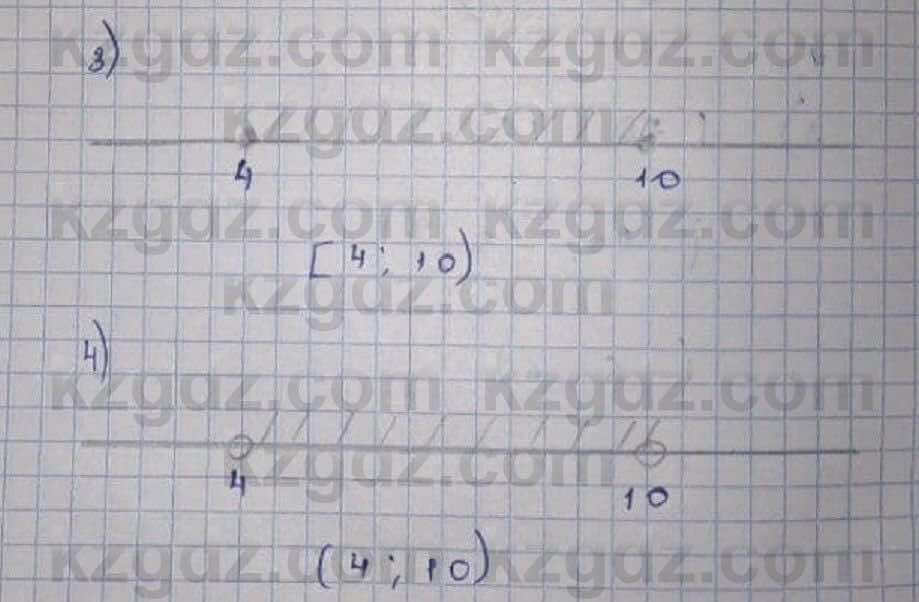 kzgdz.com kzgdz.com
3)
kzgdz.com
4 10
kzgdz.com kzgdz.com
[4; 10)
kzgdz.com
4)
kzgdz.com kzgdz.com
kzgdz.com
4 10
(4; 10)
kzgdz.com kzgdz.com